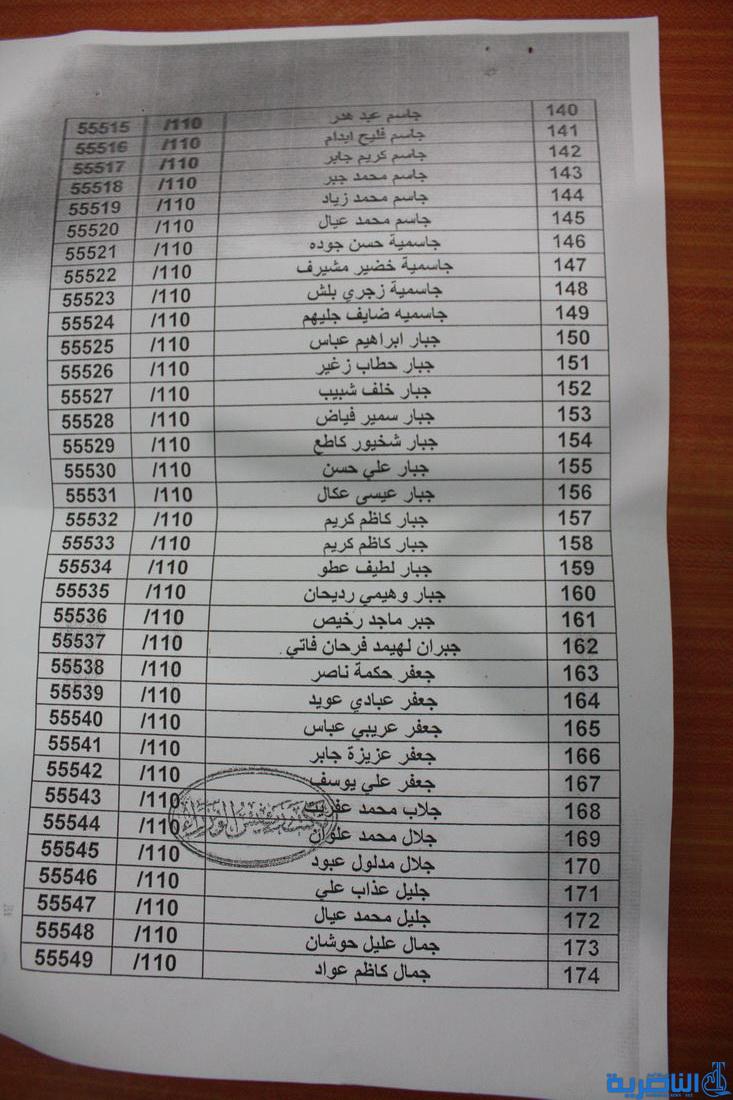 140 جاسم عبد هدر 110/ 55515
141 جاسم فليح ايدام 110/ 55516
142 جاسم كريم جابر 110/ 55517
143 جاسم محمد جبر 110/ 55518
144 جاسم محمد زياد 110/ 55519
145 جاسم محمد عيال 110/ 55520
146 جاسمية حسن جوده 110/ 55521
147 جاسمية خضير مشيرف 110/ 55522
148 جاسمية زجري بلش 110/ 55523
149 جاسميه ضايف جليهم 110/ 55524
150 جبار ابراهيم عباس 110/ 55525
151 جبار حطاب زغير 110/ 55526
152 جبار خلف شبيب 110/ 55527
153 جبار سمير فياض 110/ 55528
154 جبار شخيور كاطع 110/ 55529
155 جبار علي حسن 110/ 55530
156 جبار عيسى عكال 110/ 55531
157 جبار كاظم كريم 110/ 55532
158 جبار كاظم كريم 110/ 55533
159 جبار لطيف عطو 110/ 55534
160 جبار وهيمي رديحان 110/ 55535
161 جبر ماجد رخيص 110/ 55536
162 جبران لهيمد فرحان فاتي 110/ 55537
163 جعفر حكمة ناصر 110/ 55538
164 جعفر عبادي عويد 110/ 55539
165 جعفر عريبي عباس 110/ 55540
166 جعفر عزيزة جابر 110/ 55541
167 جعفر علي يوسف 110/ 55542
168 جلاب محمد 110/ 55543
169 جلال محمد علوان 110/ 55544
170 جلال مدلول عبود 110/ 55545
171 جليل عذاب علي 110/ 55546
172 جليل محمد عيال 110/ 55547
173 جمال عليل حوشان 110/ 55548
174 جمال كاظم عواد 110/ 55549
الناصرية